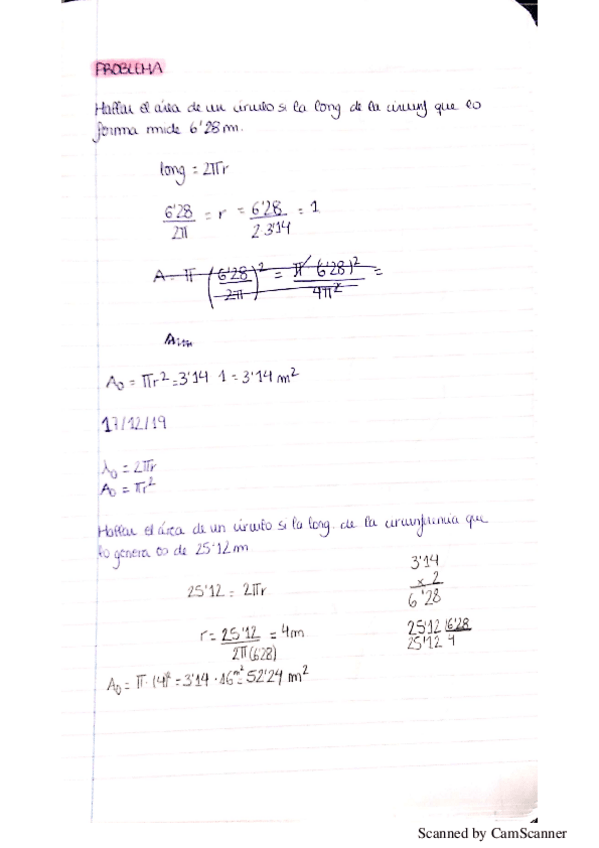 PROBLEMA
Hallar el área de un círculo si la long de la circunf que lo
forma mide 6'28m.
long = 2πr
6'28/2π = r = 6'28/2 3'14 = 1
A = π (6'28/2π)² = π (6'28)²/4π² =
A₀ = πr² = 3'14 1 = 3'14 m²
17/12/19
λ₀ = 2πr
A₀ = πr²
Hallar el área de un círculo si la long. de la circunferencia que
lo genera es de 25'12m
3'14
x 2
6'28
25'12 = 2πr
r = 25'12/2π(6'28) = 4m
25'12 6'28
25'12 4
A₀ = π · (4)² = 3'14 · 16m² = 52'24 m²
Scanned by CamScanner